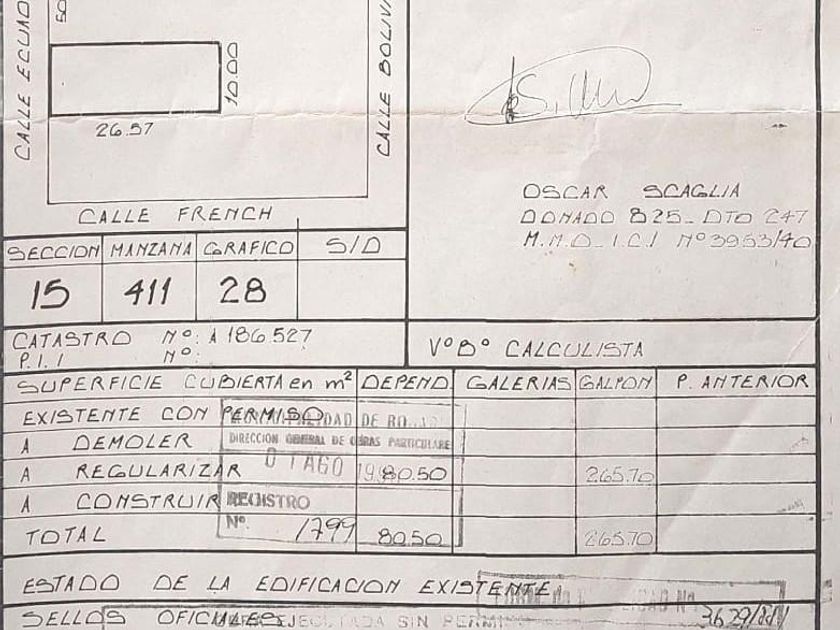 CALLE ECUAD
50
10.00
CALLE BOLIVI
26.57
CALLE FRENCH
OSCAR SCAGLIA
DONADO 825_ DTO 247
M.M.O_ I.C.I Nº 3953/40
SECCION MANZANA GRAFICO S/D
15 411 28
CATASTRO Nº: A 186.527
P.I.I Nº:
VºBº CALCULISTA
SUPERFICIE CUBIERTA en m² DEPEND. GALERIAS GALPON P. ANTERIOR
EXISTENTE CON PERMISO
MUNICIPALIDAD DE RO
A DEMOLER
DIRECCION GENERAL DE OBRAS PARTICULARE
A REGULARIZAR 80.50 265.70
AGO 19
A CONSTRUIR
REGISTRO
Nº 1799
TOTAL 80.50 265.70
ESTADO DE LA EDIFICACION EXISTENTE
SELLOS OFICIALES
EJECUTADA SIN PERMI